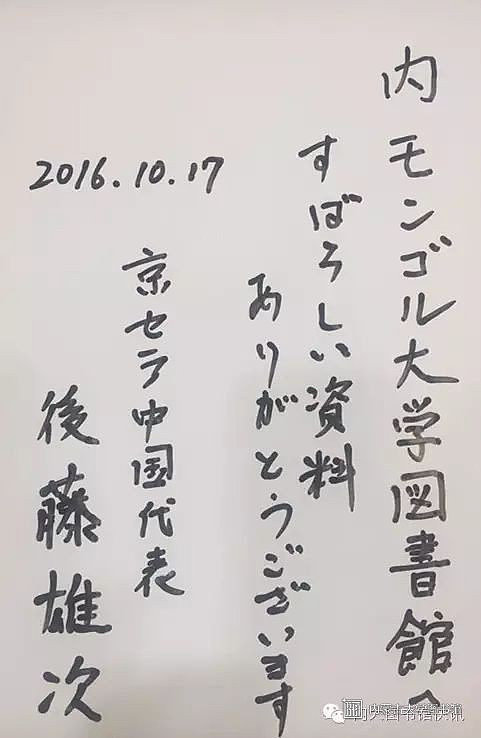 内モンゴル大学図書館へ
すばらしい資料
ありがとうございます
京セラ中国代表
後藤雄次
2016.10.17